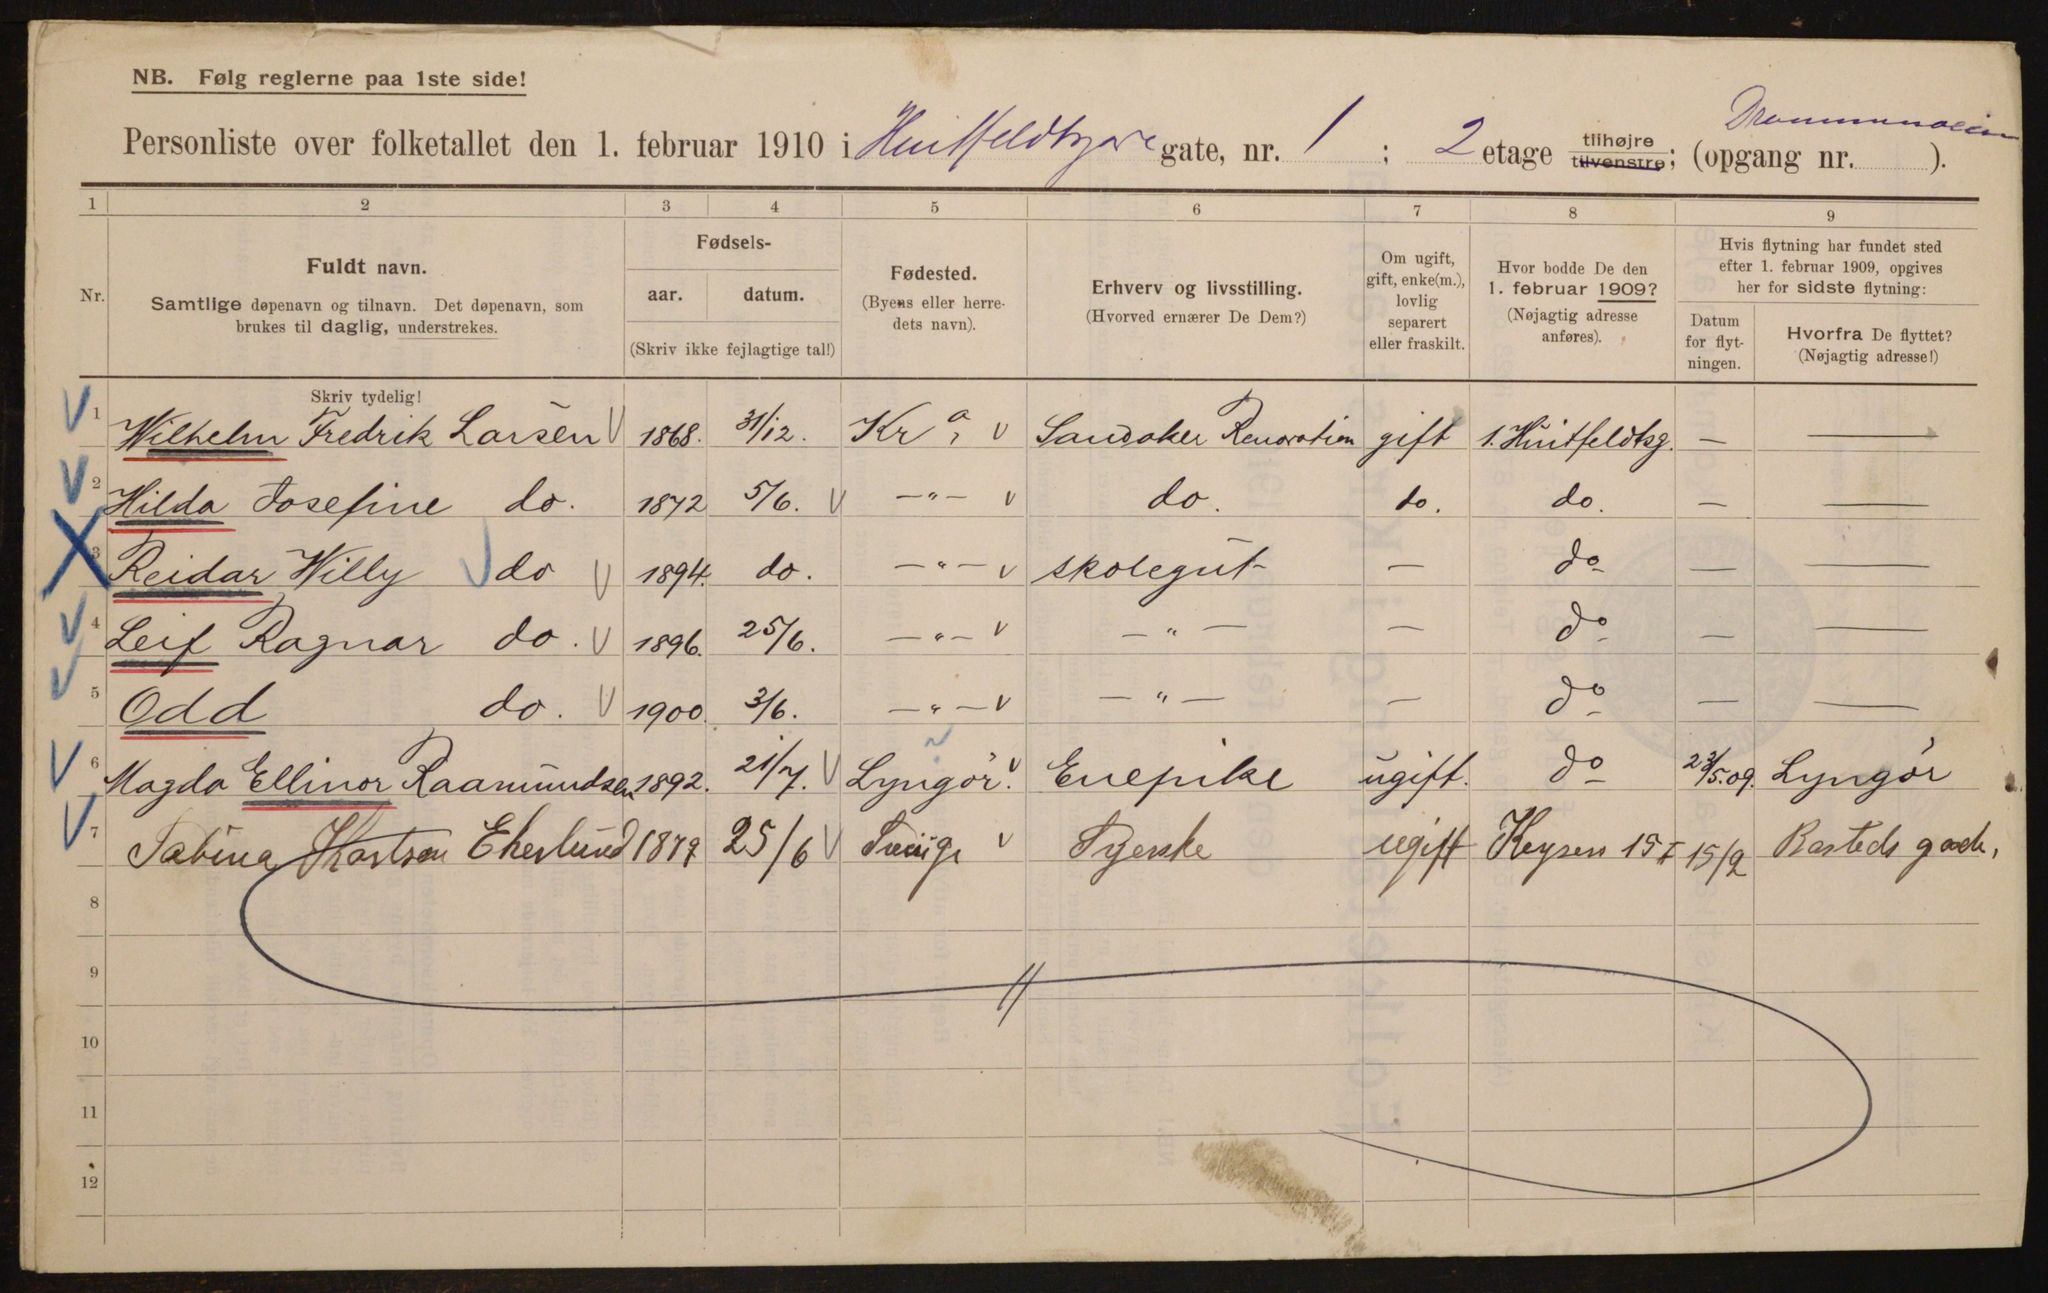 NB. Følg reglerne paa 1ste side!
Personliste over folketallet den 1. februar 1910 i Huitfeldtsgate gate, nr. 1 ; 2 etage tilhøjre tilvenstre; (opgang nr. ).
1 2 3 4 5 6 7 8 9
Nr.
Fuldt navn.
Samtlige døpenavn og tilnavn. Det døpenavn, som
brukes til daglig, understrekes.
Fødsels-
aar. datum.
(Skriv ikke fejlagtige tal!)
Fødested.
(Byens eller herre-
dets navn).
Erhverv og livsstilling.
(Hvorved ernærer De Dem?)
Om ugift,
gift, enke(m.),
lovlig
separert
eller fraskilt.
Hvor bodde De den
1. februar 1909?
(Nøjagtig adresse
anføres).
Hvis flytning har fundet sted
efter 1. februar 1909, opgives
her for sidste flytning:
Datum
for flyt-
ningen.
Hvorfra De flyttet?
(Nøjagtig adresse!)
Skriv tydelig!
1 Wilhelm Fredrik Larsen 1868. 31/12. Kr a, Sandaker Renovation gift 1. Huitfeldtsg. — —
2 Hilda Josefine do. 1872 5/6. —"— do. do. do. — —
3 Reidar Willy do 1894. do. —"— skolegut — do — —
4 Leif Ragnar do. 1896. 25/6. —"— —"— — do — —
5 Odd do. 1900. 3/6. —"— —"— — do — —
6 Magda Ellinor Raamundsen 1892. 21/7. Lyngör. Enepike ugift. do 23/5.09. Lyngör
7 Sabina Ekerlund 1879 25/6 ugift Keysers 15 I 15/2
8
9
10
11
12